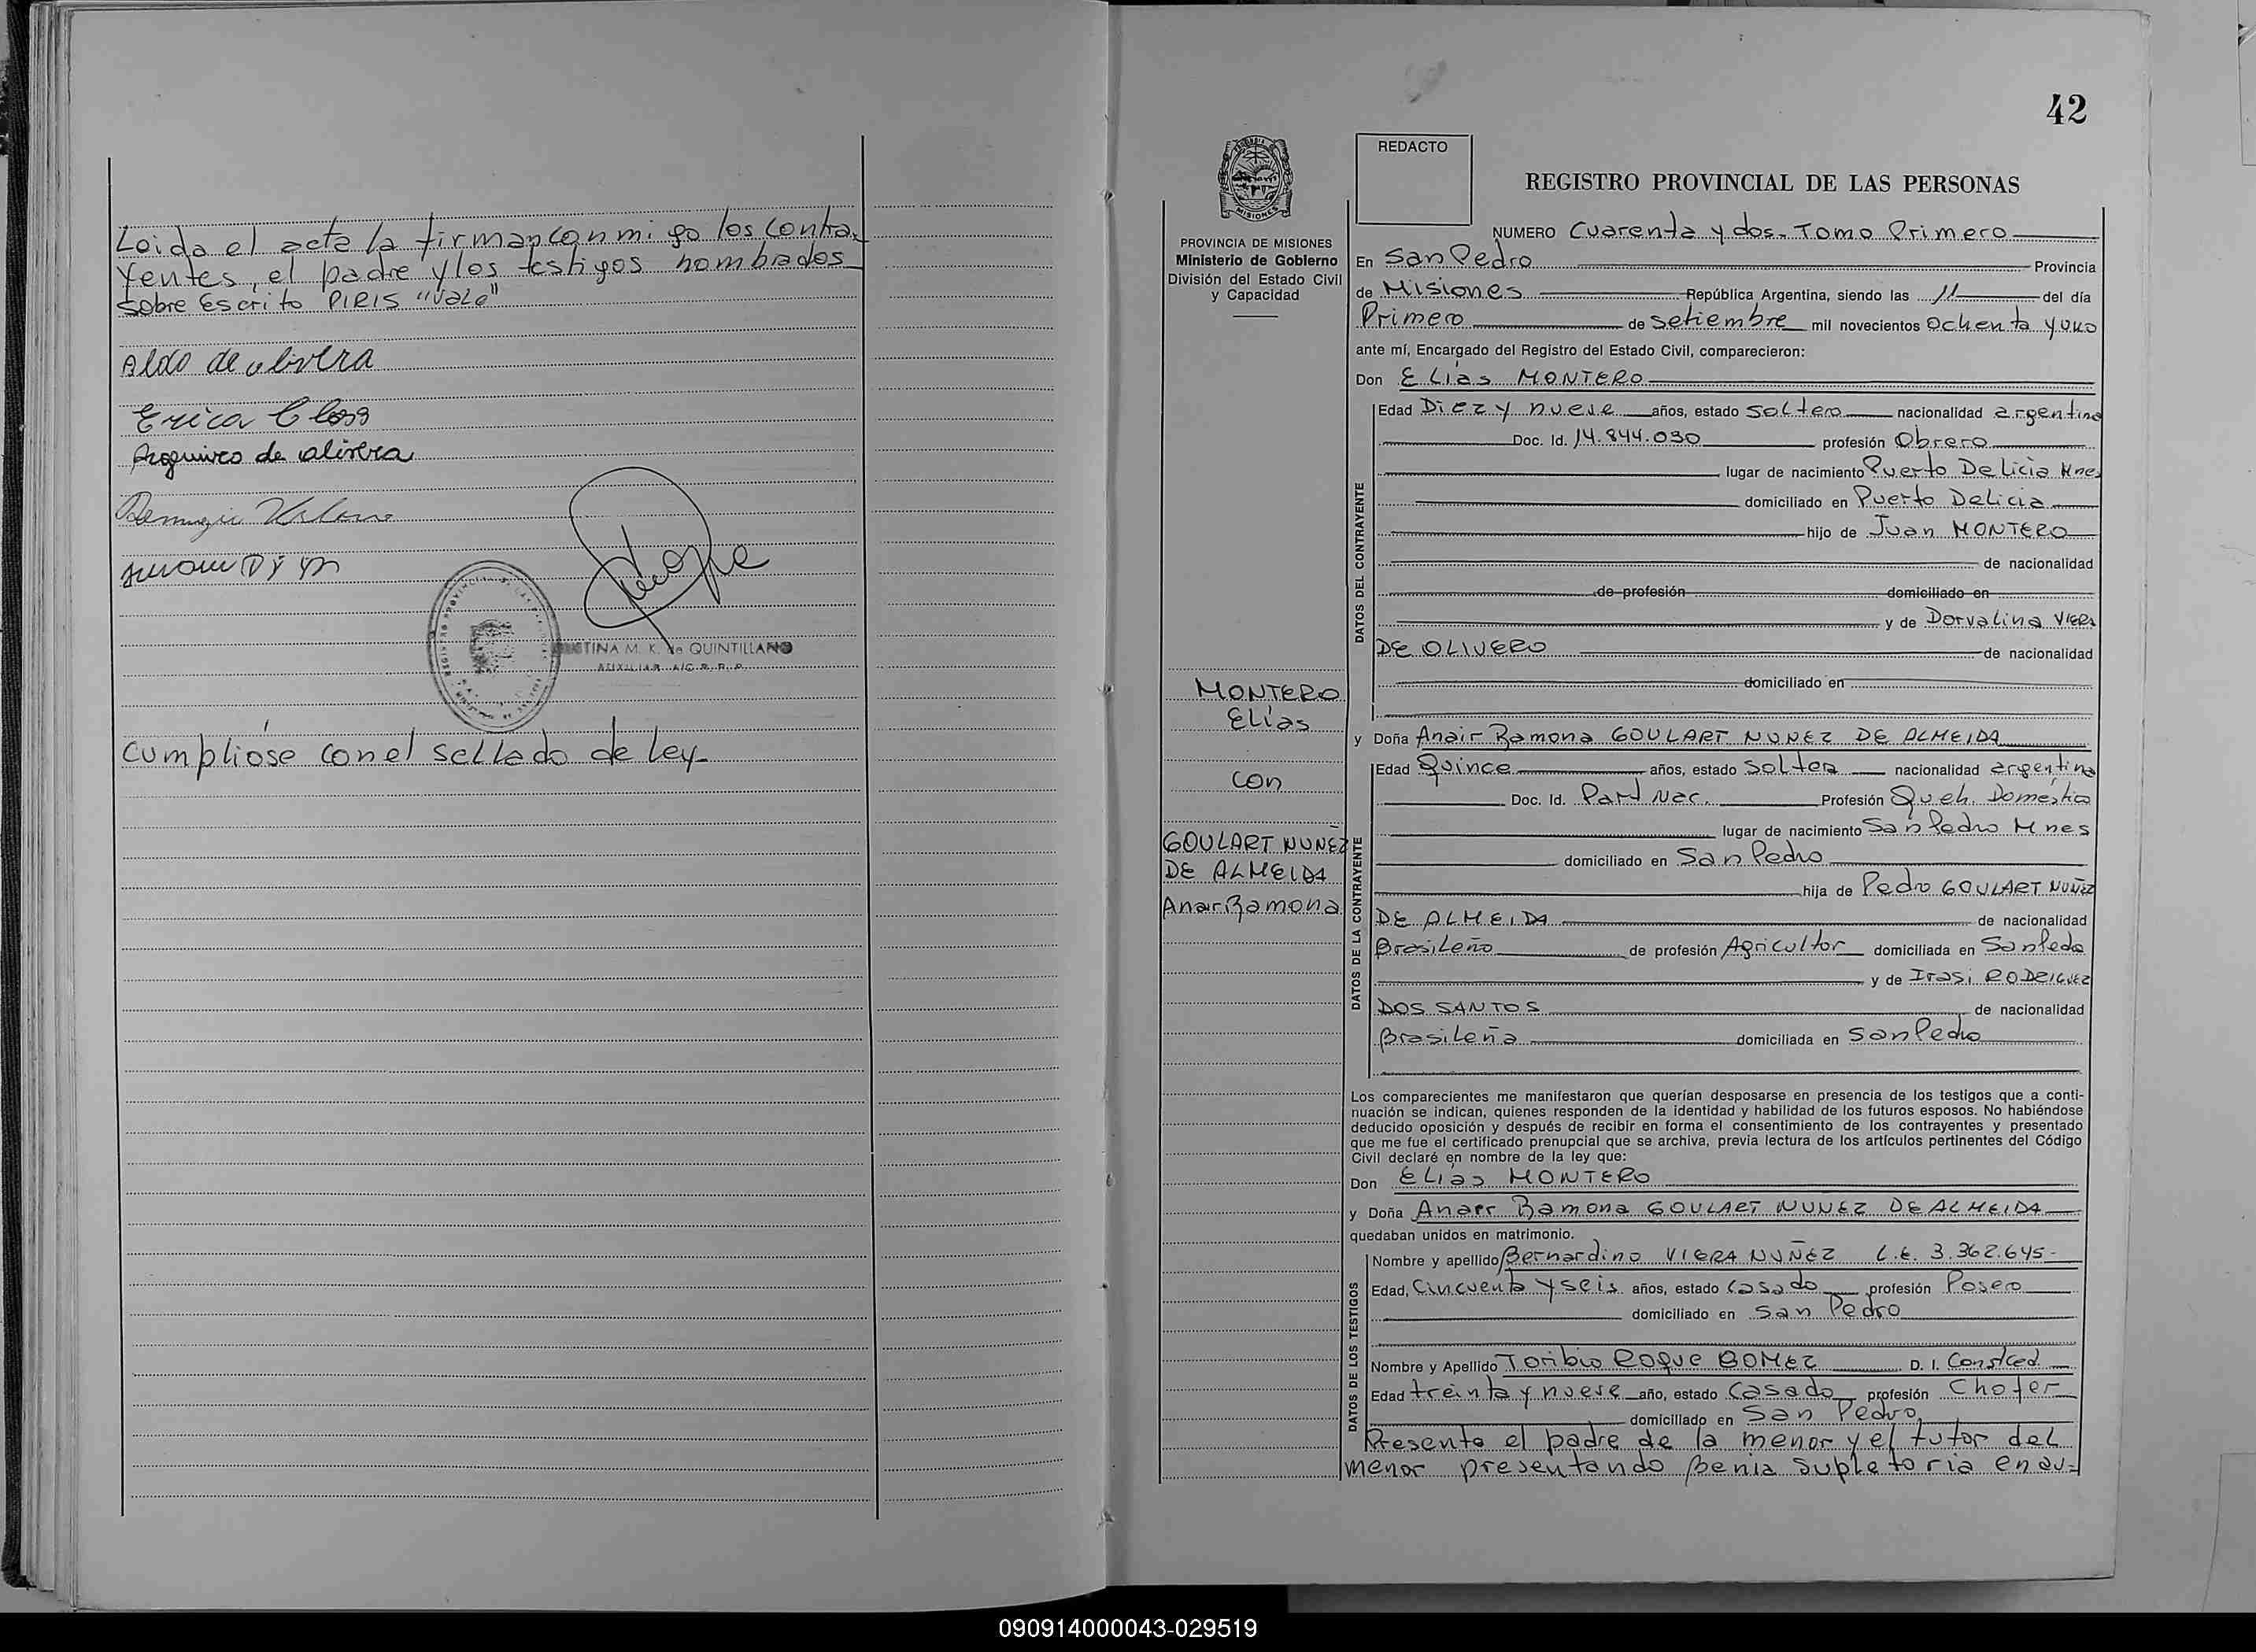 Loida el acta la firman conmigo los contra-
yentes, el padre y los testigos nombrados
Sobre Escrito PIRIS "Vale"
Aldo de olivera
Erica Closs
Argimiro de olivera
Remigio
STINA M. K. de QUINTILLANO
AUXILIAR A/C R. P. P.
cumplióse con el sellado de ley
42
REDACTO
REGISTRO PROVINCIAL DE LAS PERSONAS
MISIONES
PROVINCIA DE MISIONES
Ministerio de Gobierno
División del Estado Civil
y Capacidad
NUMERO Cuarenta y dos- Tomo Primero
En San Pedro Provincia
de Misiones República Argentina, siendo las 11 del día
Primero de setiembre mil novecientos Ochenta y uno
ante mí, Encargado del Registro del Estado Civil, comparecieron:
Don Elías MONTERO
DATOS DEL CONTRAYENTE
Edad Diez y nueve años, estado soltero nacionalidad argentina
Doc. Id. 14.844.030 profesión Obrero
lugar de nacimiento Puerto Delicia Mnes
domiciliado en Puerto Delicia
hijo de Juan MONTERO
de nacionalidad
de profesión domiciliado en
y de Dorvalina VIERA
DE OLIVERO de nacionalidad
domiciliado en
MONTERO
Elías
con
GOULART NUNEZ
DE ALMEIDA
Anair Ramona
y Doña Anair Ramona GOULART NUNEZ DE ALMEIDA
DATOS DE LA CONTRAYENTE
Edad Quince años, estado Soltera nacionalidad argentina
Doc. Id. Part Nac. Profesión Queh. Doméstica
lugar de nacimiento San Pedro Mnes
domiciliado en San Pedro
hija de Pedro GOULART NUÑEZ
DE ALMEIDA de nacionalidad
Brasileño de profesión Agricultor domiciliada en San Pedro
y de Irasi RODRIGUEZ
DOS SANTOS de nacionalidad
Brasileña domiciliada en San Pedro
Los comparecientes me manifestaron que querían desposarse en presencia de los testigos que a conti-
nuación se indican, quienes responden de la identidad y habilidad de los futuros esposos. No habiéndose
deducido oposición y después de recibir en forma el consentimiento de los contrayentes y presentado
que me fue el certificado prenupcial que se archiva, previa lectura de los artículos pertinentes del Código
Civil declaré en nombre de la ley que:
Don Elías MONTERO
y Doña Anair Ramona GOULART NUNEZ DE ALMEIDA
quedaban unidos en matrimonio.
DATOS DE LOS TESTIGOS
Nombre y apellido Bernardino VIERA NUÑEZ L.E. 3.362.645-
Edad, Cincuenta y seis años, estado Casado profesión Posero
domiciliado en San Pedro
Nombre y Apellido Toribio Roque GOMEZ D. I. Const ced
Edad treinta y nueve año, estado Casado profesión Chofer
domiciliado en San Pedro
Presente el padre de la menor y el tutor del
menor presentando benia supletoria en au-
090914000043-029519